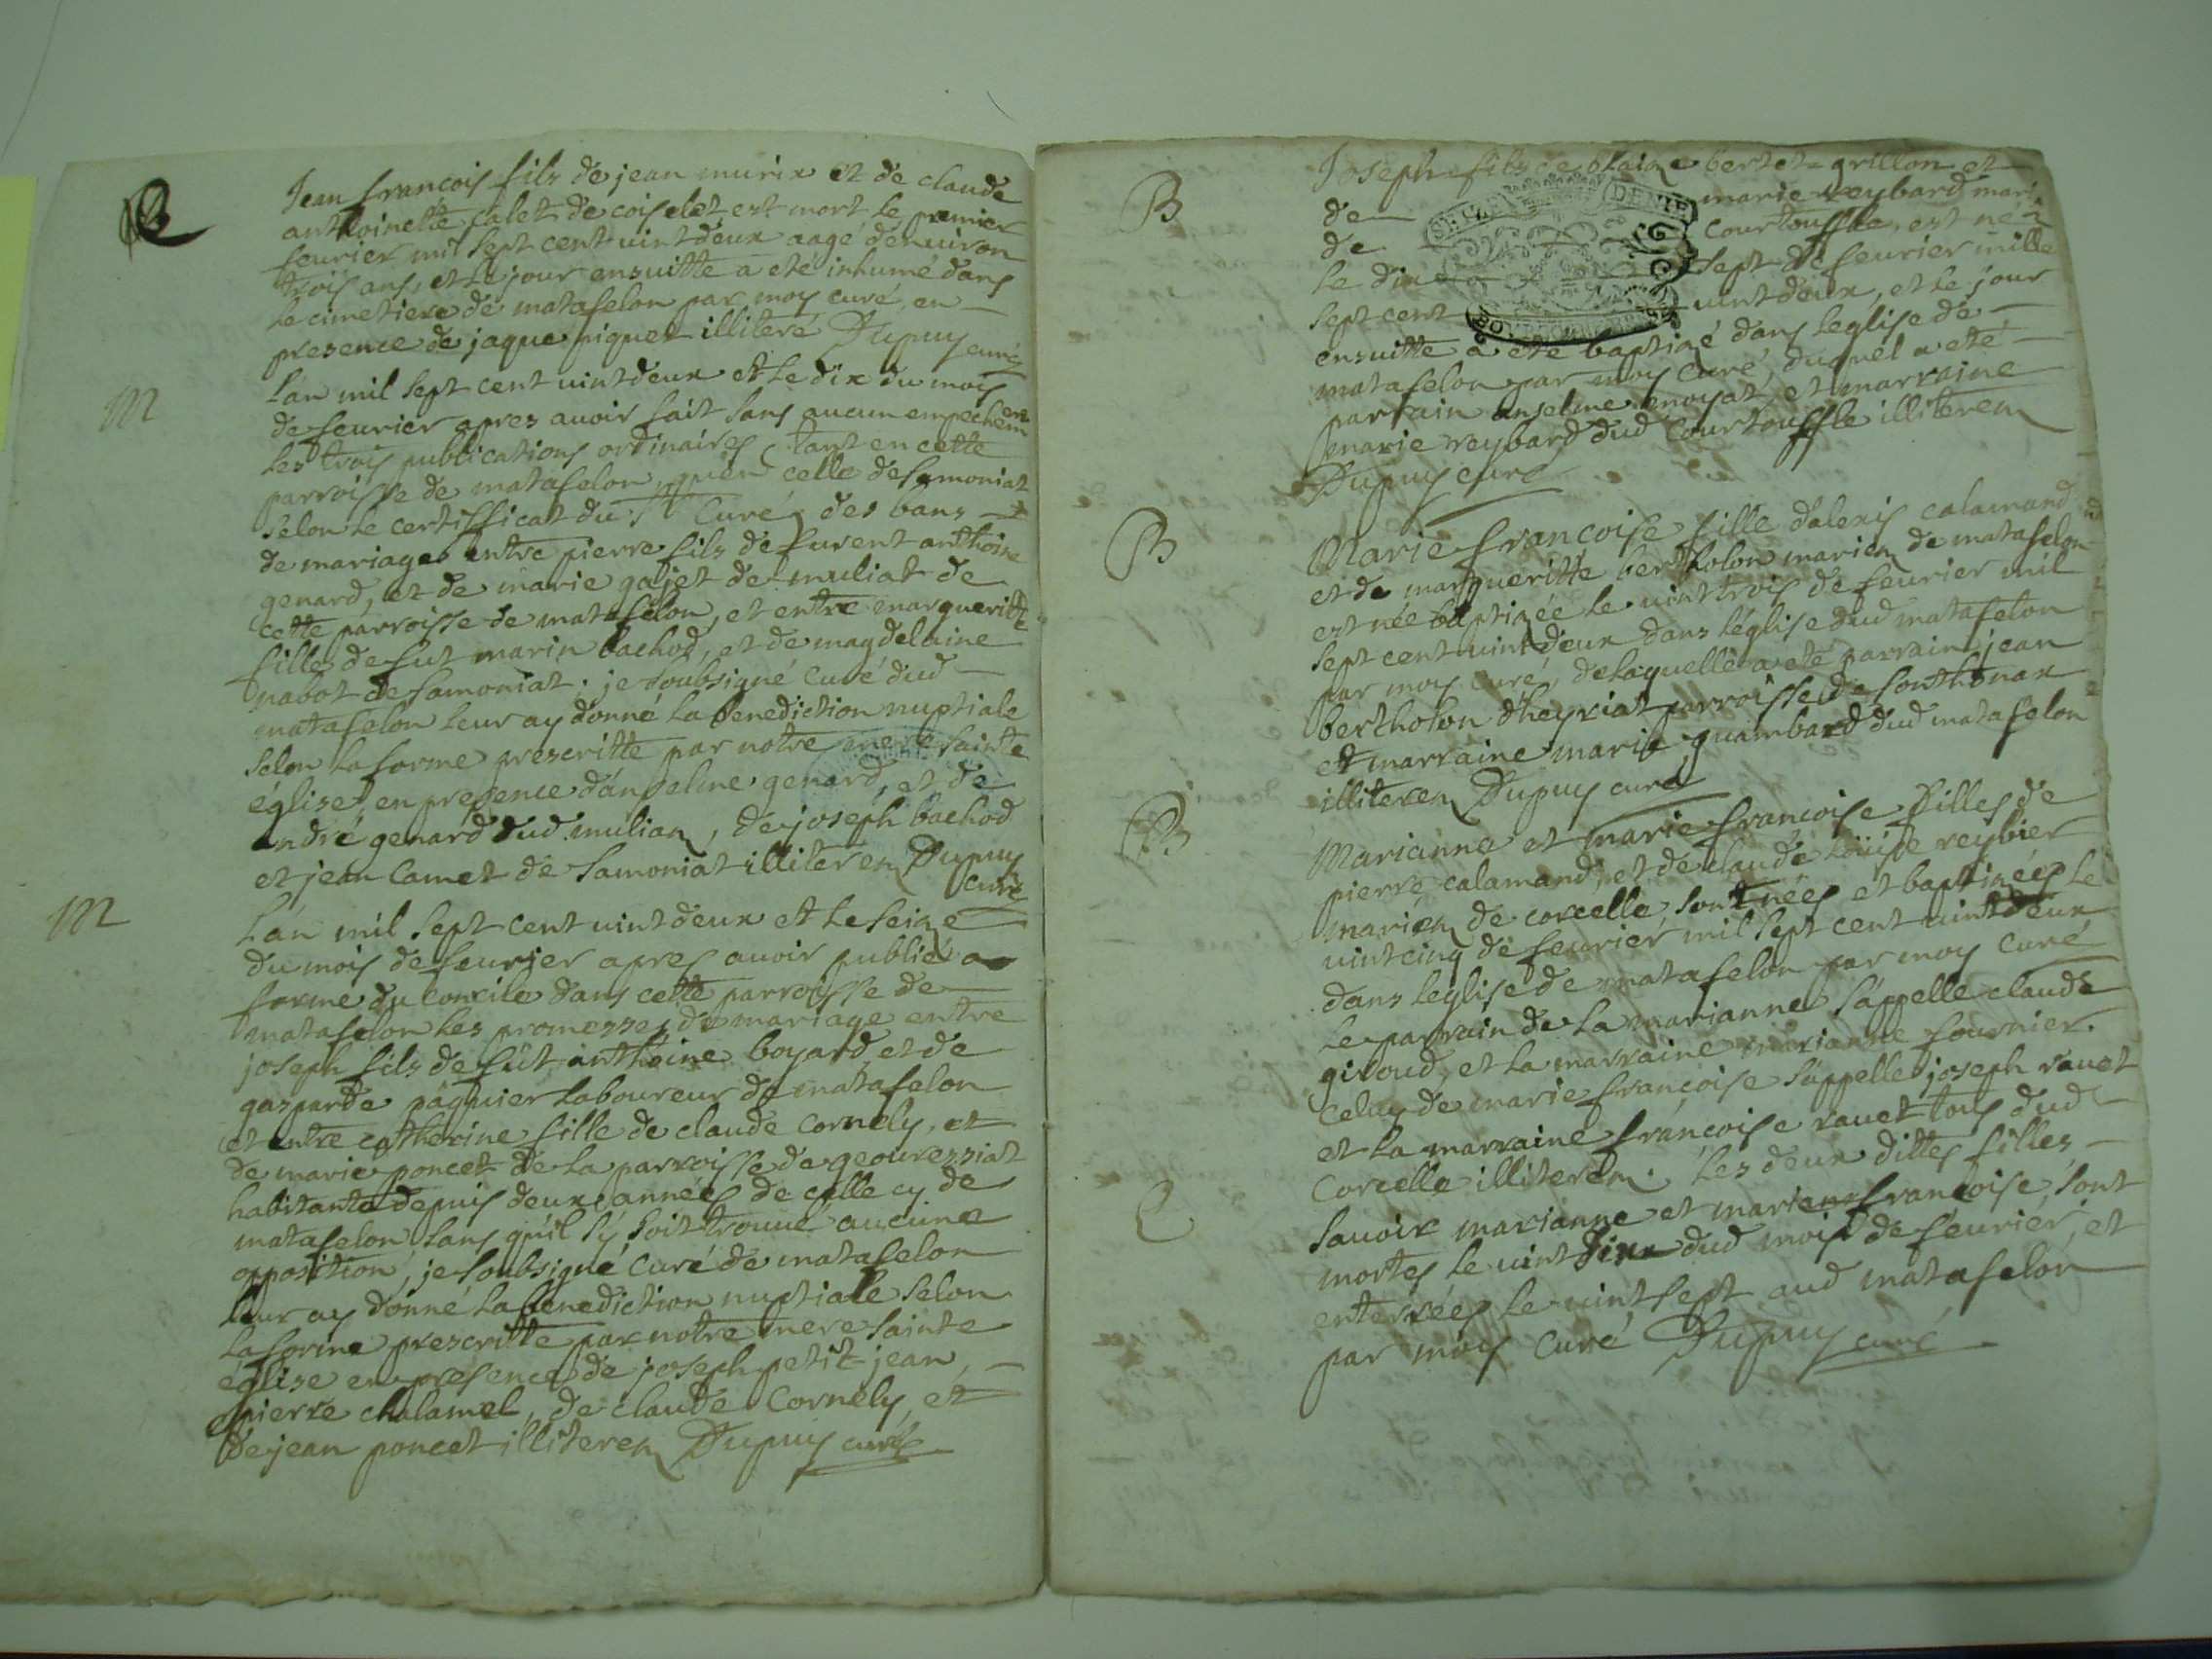 Jean francois fils de jean murix et de claude
anthoinette calet de coiselet est mort le premier
feurier mil sept cent uint deux aagé denuiron
trois ans, et le jour ensuitte a eté inhumé dans
le cimetiere de matafelon par moy curé, en
presence de jaque piquet illiteré Dupuy curé
M
Lan mil sept cent uint deux et le dix du mois
de feurier apres auoir fait sans aucun empechem ent
les trois publications ordinaires, tant en cette
parroisse de matafelon, quen celle de samoniat
selon le certifficat du Sr Curé des bans
de mariages entre pierre fils de furent anthoine
genard, et de marie gajet de muliat de
cette parroisse de matafelon, et entre margueritte
fille de fut marin bachod, et de magdelaine
nabot de samoniat; je soubsigné Curé dud
matafelon leur ay donné la benediction nuptiale
selon la forme prescritte par notre mere sainte
église, en presence d'anselme genard, et de
andré genard dud mulian, de joseph bachod
et jean Camet de samoniat illiteren Dupuy
curé
M
Lán mil sept cent uint deux et le seize
du mois de feurier apres auoir publié a
forme du Concile dans cette parroisse de
matafelon les promesses de mariage entre
joseph fils de fut anthoine boyard, et de
gasparde páquier laboureur de matafelon
et entre catherine fille de claude Cornely, et
de marie poncet de la parroisse de geouressiat
habitante depuis deux années de celle cy de
matafelon sans quíl s'y soit trouué aucune
opposition, je soubsigné Curé de matafelon
leur ay donné la benediction nuptiale selon
la forme prescritte par notre mere sainte
eglise en presence de joseph petit-jean,
pierre chalamel, de claude Cornely, et
de jean poncet illiteren Dupuy curé
B
Joseph fils de blaize bertet-grillon et
de marie reybard mari
de Courtouffle, est né
le dix sept de feurier mille
sept cent uint deux, et le jour
ensuitte a eté baptizé dans leglise de
matafelon par moy Curé, duquel a eté
parrain anselme enoyat, et marraine
marie reybard dud Courtouffle illiteren
Dupuy curé
B
Marie francoise fille dalexis calamand
et de margueritte bertholon marien de matafelon
est née baptizée le uint trois de feurier mil
sept cent uint deux dans léglise dud matafelon
par moy Curé, de laquelle a eté parrain jean
bertholon dheyriat parroisse de sonthonax
et marraine marie guambard dud matafelon
illiteren Dupuy curé
B
Marianne et marie francoise filles de
pierre calamand, et de claude Loüise reybier
marien de corcelle, sont nées et baptizées le
uint cinq de feurier mil sept cent uint deux
dans leglise de matafelon par moy Curé
Le parrain de la marianne s'appelle claude
giroud, et la marraine marianne fournier.
celuy de marie francoise s'appelle joseph rauet
et la marraine francoise rauet tous dud
Corcelle illiteren. Les deux dittes filles
C
sauoir marianne et marie francoise, sont
mortes le uint six dud mois de feurier, et
enterrées le uint sept aud matafelon
par moy Curé Dupuy curé